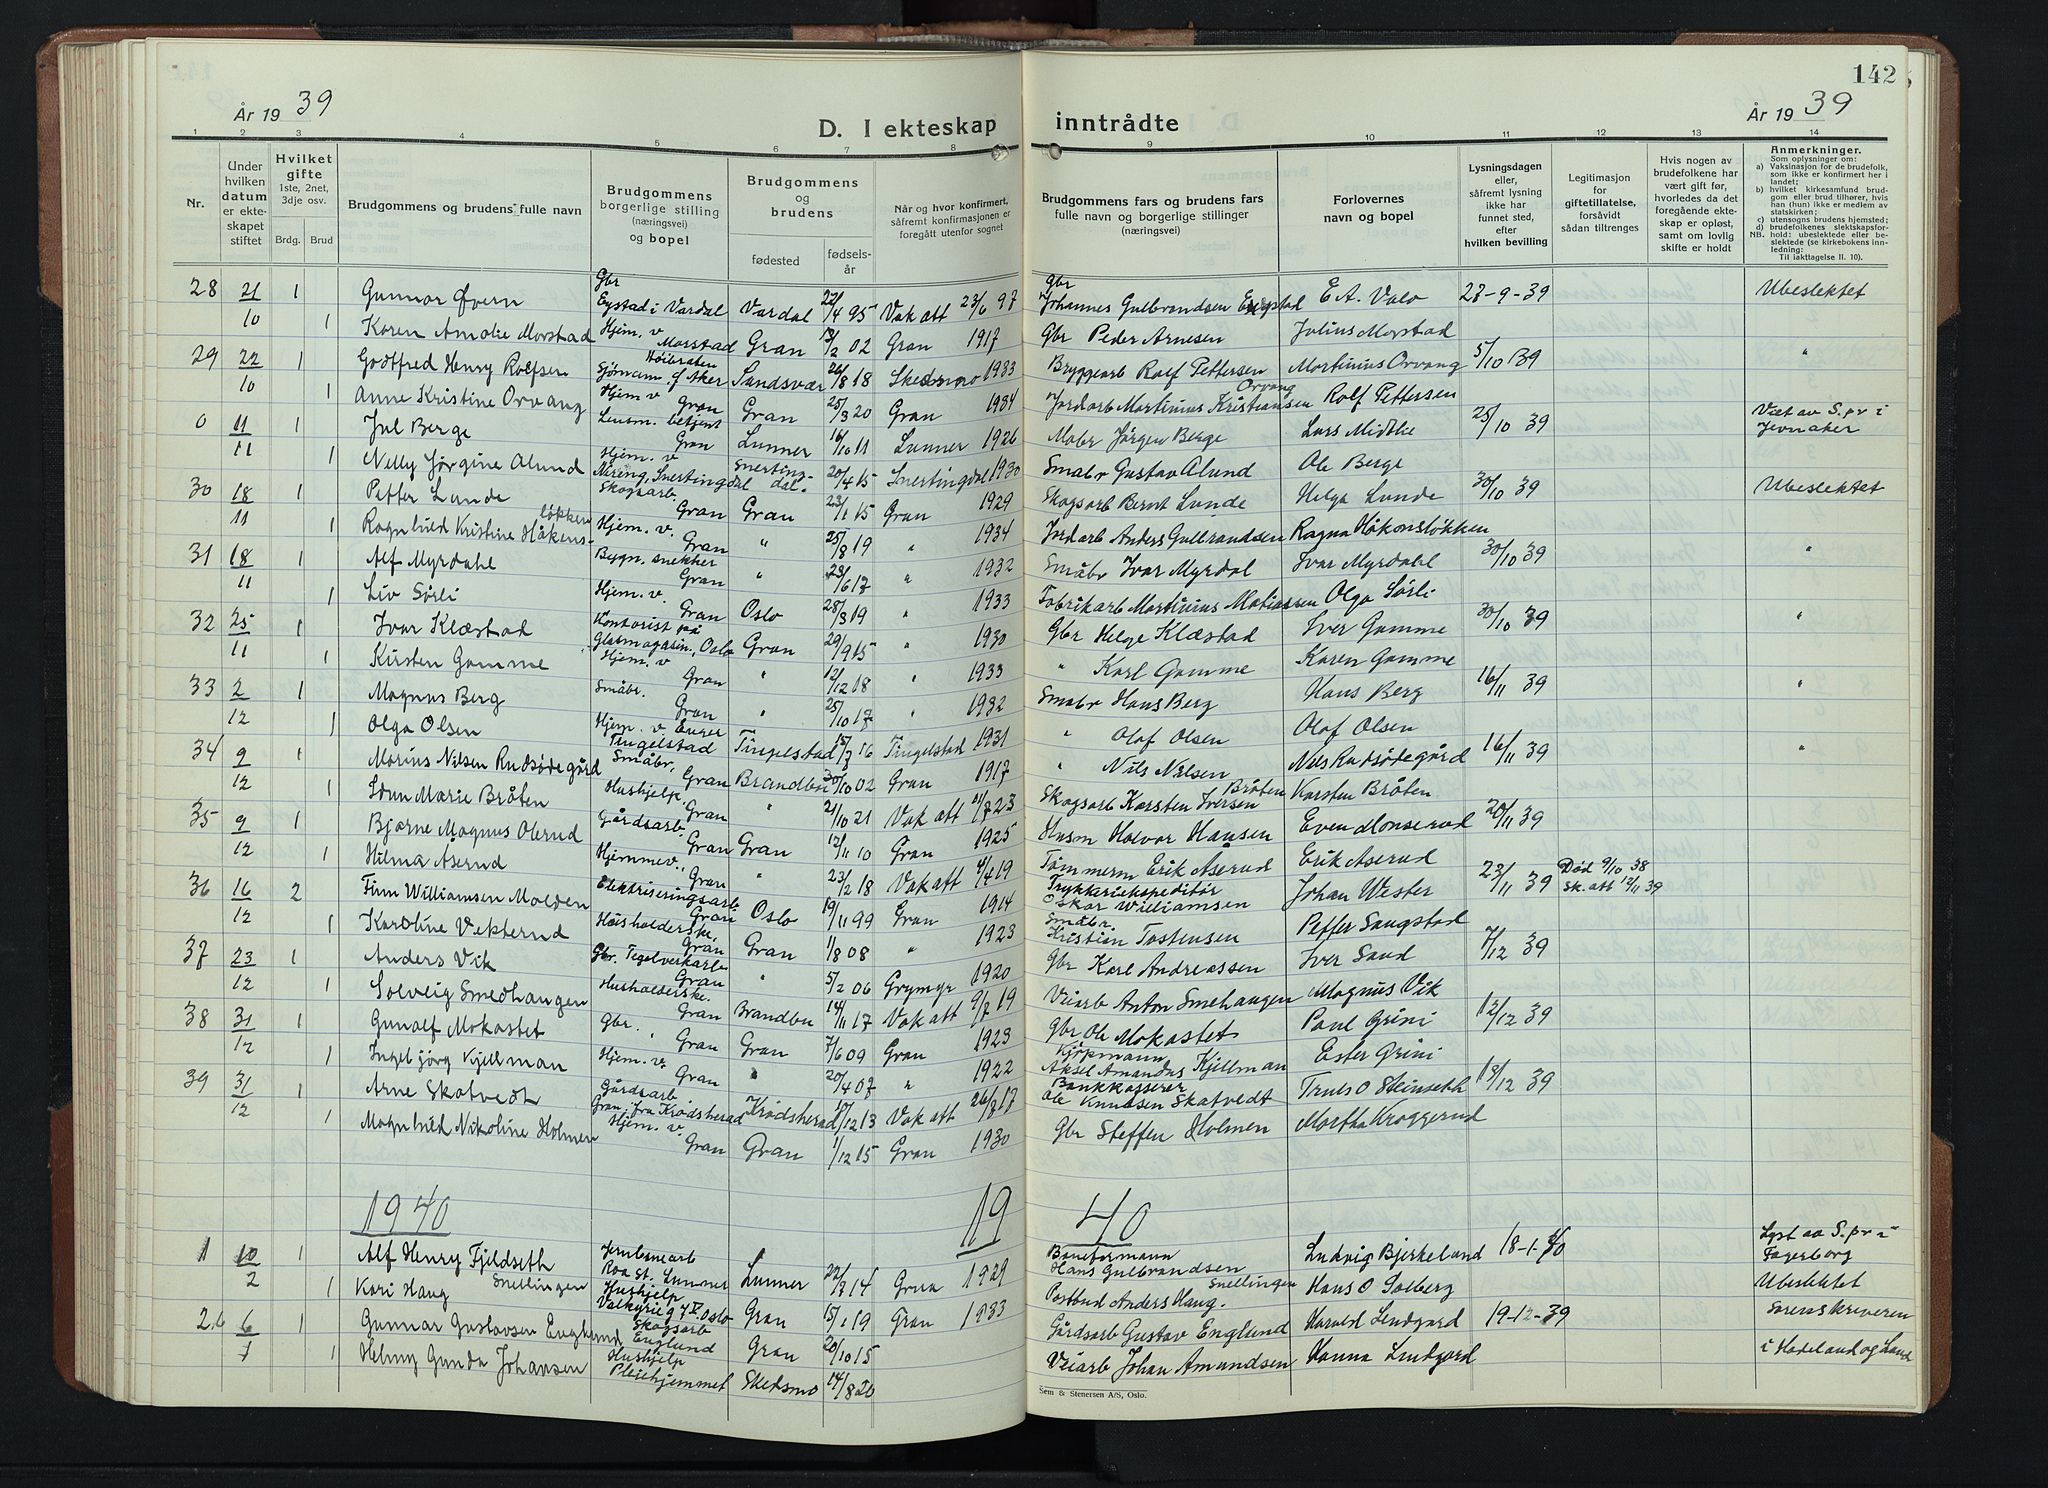 142
År 19 39
D. I ekteskap inntrådte
År 19 39
1 2 3 4 5 6 7 8 9 10 11 12 13 14
Nr.
Under hvilken datum er ekteskapet stiftet
Hvilket gifte 1ste, 2net, 3dje osv.
Brdg. Brud
Brudgommens og brudens fulle navn
Brudgommens borgerlige stilling (næringsvei) og bopel
Brudgommens og brudens
fødested
fødselsår
Når og hvor konfirmert, såfremt konfirmasjonen er foregått utenfor sognet
Brudgommens fars og brudens fars fulle navn og borgerlige stillinger (næringsvei)
Forlovernes navn og bopel
Lysningsdagen eller, såfremt lysning ikke har funnet sted, efter hvilken bevilling
Legitimasjon for giftetillatelse, forsåvidt sådan tiltrenges
Hvis nogen av brudefolkene har vært gift før, hvorledes da det foregående ekteskap er opløst, samt om lovlig skifte er holdt
Anmerkninger.
Som oplysninger om:
a) Vaksinasjon for de brudefolk, som ikke er konfirmert her i landet;
b) hvilket kirkesamfund brudgom eller brud tilhører, hvis han (hun) ikke er medlem av statskirken;
c) utensogns brudens hjemsted;
d) brudefolkenes slektskapsforhold: ubeslektede eller beslektede (se kirkebokens innledning:
NB.
Til iakttagelse II. 10).
28 21/10 1 Gunnar Øvern Gbr Engstad i Vardal Vardal 22/4 95 Vak att 23/6 97 Gbr Johannes Gulbrandsen Engstad E. A. Valo 27-9-39 Ubeslektet
1 Karen Amalie Morstad Hjem. v. Morstad Gran 13/2 02 Gran 1917 Gbr Peder Arnesen Julius Morstad
29 22/10 1 Godtfred Henry Rolfsen Høibråten Sjømann f Aker Sandsvær 26/8 18 Skedsmo 1933 Bryggearb Rolf Pettersen Martinius Orvang 5/10 39 "
1 Anne Kristine Orvang Hjem v Gran Gran 25/3 20 Gran 1934 Jordarb Martinius Kristiansen Orvang Rolf Pettersen
0 11/11 1 Jul Berge Lensm. betjent Gran Lunner 16/10 11 Lunner 1926 Møbr Jørgen Berge Lars Midtlie 25/10 39 Viet av S.pr i Jevnaker
1 Nelly Jørgine Ålund Hjem. v Næring, Snertingdal Snertingdal 20/4 15 Snertingdal 1930 Småbr Gustav Ålund Ole Berge
30 18/11 1 Petter Lunde Skogsarb. Gran Gran 23/1 15 Gran 1929 Skogsarb Bernt Lunde Helga Lunde 30/10 39 Ubeslektet
1 Ragnhild Kristine Håkensløkken Hjem. v. Gran " 25/8 19 " 1934 Jordarb Anders Gulbrandsen Ragna Håkonsløkken
31 18/11 1 Alf Myrdahl Bygn. snekker Gran " 23/6 17 " 1932 Småbr Ivar Myrdal Ivar Myrdahl 30/10 39 "
1 Liv Sørli Hjem. v. Gran Oslo 28/3 19 " 1933 Fabrikarb Martinius Matiassen Olga Sørli
32 25/11 1 Ivar Klæstad Kontorist på Glasmagasin, Oslo Gran 29/9 15 " 1930 Gbr Helge Klæstad Iver Gamme 30/10 39 "
1 Kirsten Gamme Hjem. v Gran " 12/12 18 " 1933 " Karl Gamme Karen Gamme
33 2/12 1 Magnus Berg Småbr. Gran " 25/10 17 " 1932 Småbr Hans Berg Hans Berg 16/11 39 "
1 Olga Olsen Hjem. v. Enger Tingelstad Tingelstad 15/7 16 Tingelstad 1931 " Olaf Olsen Olaf Olsen
34 9/12 1 Marius Nilsen Rudsødegård Småbr, Gran Brandbu 30/10 02 Gran 1917 " Nils Nilsen Nils Rudsødegård 16/11 39 "
1 Edun Marie Bråten Hushjelp, Gran " 21/10 21 Vak att 21/7 23 Skogsarb Karsten Iversen Bråten Karsten Bråten
35 9/12 1 Bjarne Magnus Olerud Gårdsarb. Gran Gran 12/11 10 Gran 1925 Husm Halvor Hansen Even Monserud 20/11 39
1 Hilma Åserud Hjemmev., Gran " 23/2 18 Vak att 4/4 19 Tømmerm Erik Åserud Erik Aserud
36 16/12 2 Finn Williamsen Molden Elektriseringsarb. Gran Oslo 19/11 99 Gran 1914 Trykkeriekspeditør Oskar Williamsen Johan Wester 23/11 39 Død 9/10 38 Sk. att 12/11 39
1 Karoline Vekterud Husholderske, Gran Gran 1/8 08 " 1923 Småbr. Kristian Tostensen Petter Sangstad
37 23/12 1 Anders Vik Gbr. Teglverkarb Gran " 5/2 06 Grymyr 1920 Gbr Karl Andreassen Iver Sand 7/12 39
1 Solveig Smedhaugen Husholderske. Gran Brandbu 14/11 17 Vak att 9/7 19 Veiarb Anton Smehaugen Magnus Vik
38 31/12 1 Gunalf Mokastet Gbr. " Gran Gran 7/6 09 Gran 1923 Gbr Ole Mokastet Paul Grini 12/12 39
1 Ingebjørg Kjellman Hjem. v. Gran " 20/4 07 " 1922 Kjøpmann Aksel Amandus Kjellman Ester Grini
39 31/12 1 Arne Skatvedt Gårdsarb Gran, fra Krødsherad Krødsherad 15/12 13 Vak att 26/8 17 Bankkasserer Ole Knudsen Skatvedt Truls O Steinseth 18/12 39
1 Magnhild Nikoline Holmen Hjem. v. Gran Gran 1/12 15 Gran 1930 Gbr Steffen Holmen Martha Kroggerud
1940 19 40
1 10/2 1 Alf Henry Fjeldseth Jernbanearb Roa St. Lunner Lunner 22/7 14 Grua 1929 Baneformann Hans Gulbrandsen Ludvig Bjerkelund 18-1-40 Lyst av S.pr i Fagerborg
1 Kari Haug Snellingen Hushjelp Valkyrieg 7 V Oslo Gran 15/1 19 Gran 1933 Postbud Anders Haug. Snellingen Hans O Solberg Ubeslektet
2.b 6/1 1 Gunnar Gustavsen Englund Skogsarb Englund Gran 20/10 15 Gårdsarb Gustav Englund Harald Lundgård 19-12-39 Sorenskriveren
1 Helmy Gunda Johansen Hushjelp Pleiehjemmet Skedsmo 14/8 20 Veiarb Johan Amundsen Hanna Lundgård i Hadeland og Land
Sem & Stenersen A/S, Oslo.